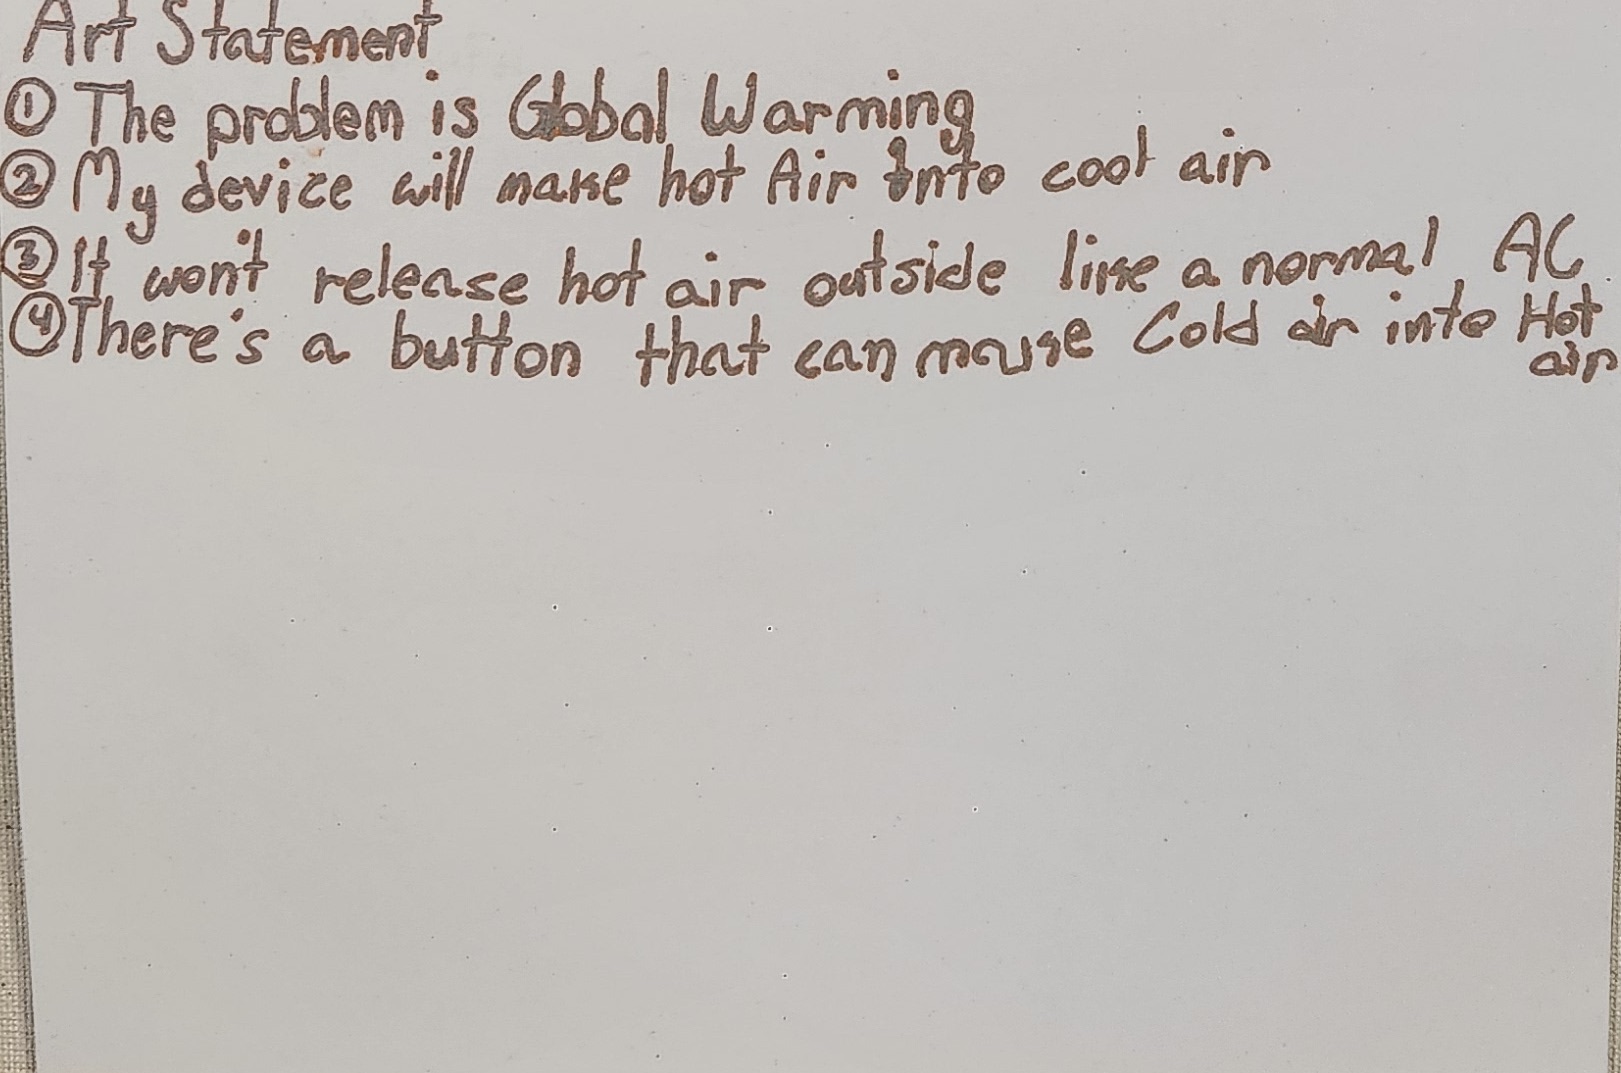 Art Statement
① The problem is Global Warming
② My device will make hot Air Into cool air
③ It won't release hot air outside like a normal AC
④ There's a button that can make Cold air into Hot
air